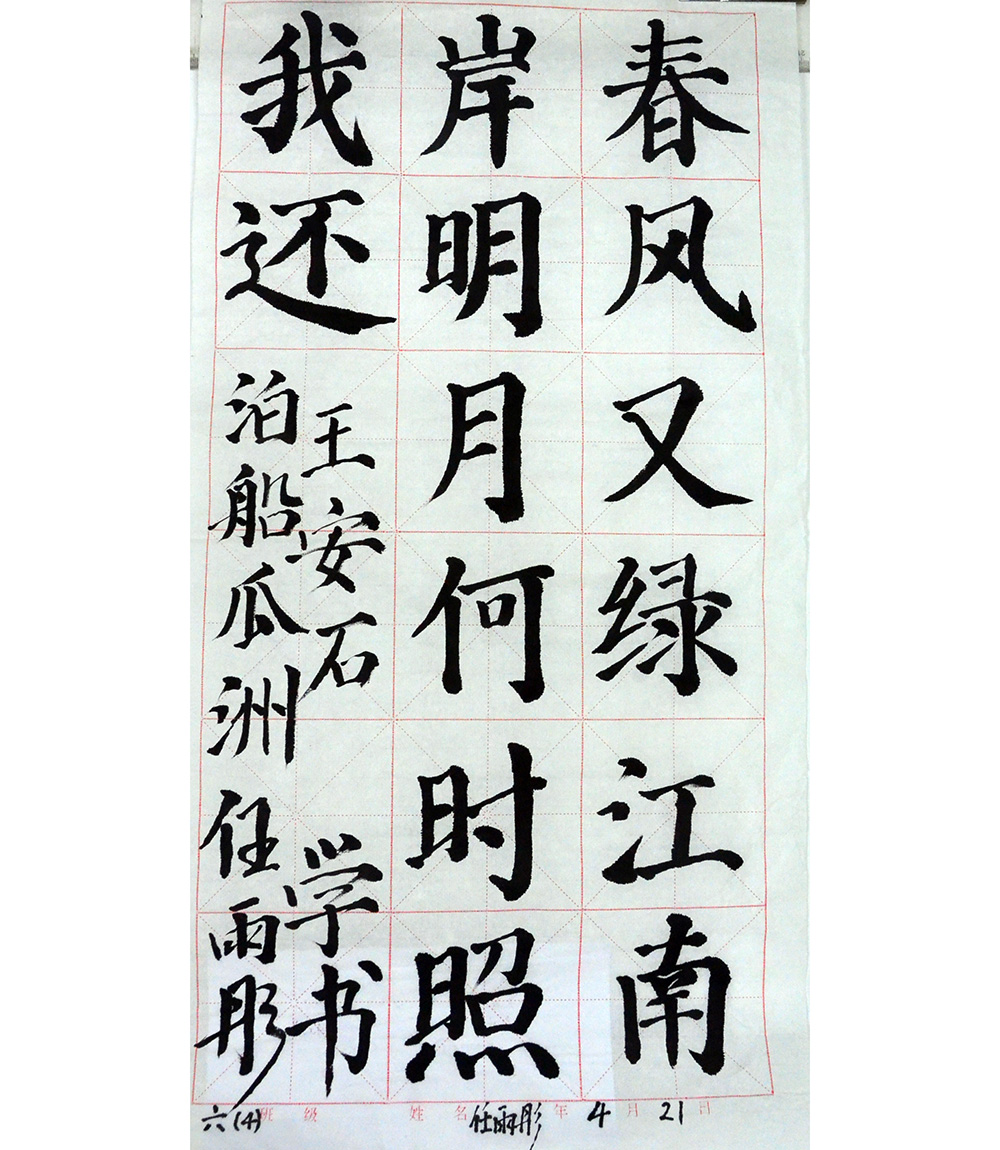 春风又绿江南
岸明月何时照
我还
王安石
泊船瓜洲
学书
任雨彤
六(4)班级 姓名任雨彤 年4月21日